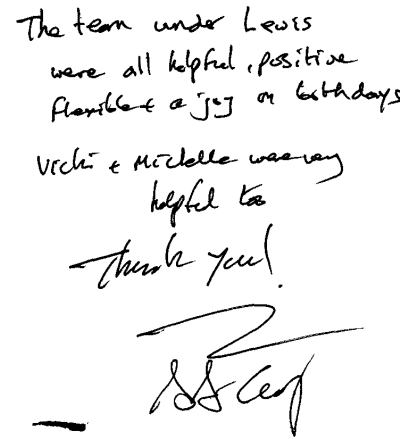 The team under Lewis
were all helpful, positive
flexible + a joy on both days
Vicki + Michelle were very
helpful too
Thank you!